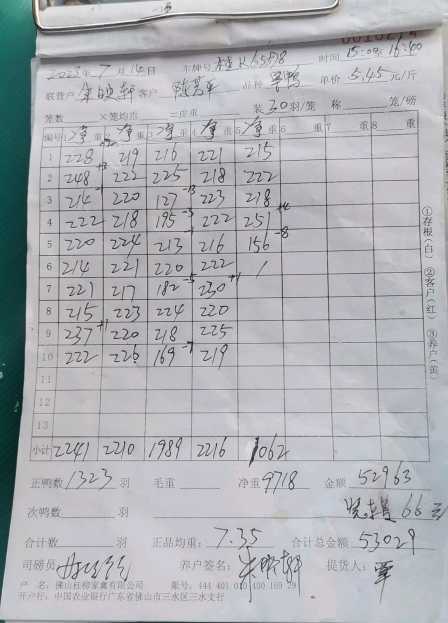 2023年7月14日 车牌号 桂K65578 时间 15:00 16:40
联营户 客户 品种 单价 5.45元/斤
笼数 ×笼均重 =庄重 装30羽/笼 称 笼/磅
编号 1 净重 2 净重 3 净重 4 净重 5 净重 6 重 7 重 8 重
1 228 219 216 221 215
2 248 222 225 218 222
3 214 220 127 -13 223 218
4 222 218 195 -3 222 251 +4
5 220 224 213 216 156 -8
6 214 221 220 222 /
7 221 217 182 -5 230 +1
8 215 223 224 220
9 237 +1 220 218 225
10 222 226 169 -7 219
11
12
13
小计 2241 2210 1989 2216 1062
正鸭数 1323 羽 毛重 净重 9718 金额 52963
次鸭数 羽 66元
合计数 羽 正品均重: 7.35 合计总金额 53029
司磅员 养户签名: 提货人:
户 名: 佛山桂柳家禽有限公司 账号: 444 401 010 400 169 29
开户行: 中国农业银行广东省佛山市三水区三水支行
①存根(白) ②客户(红) ③养户(黄)